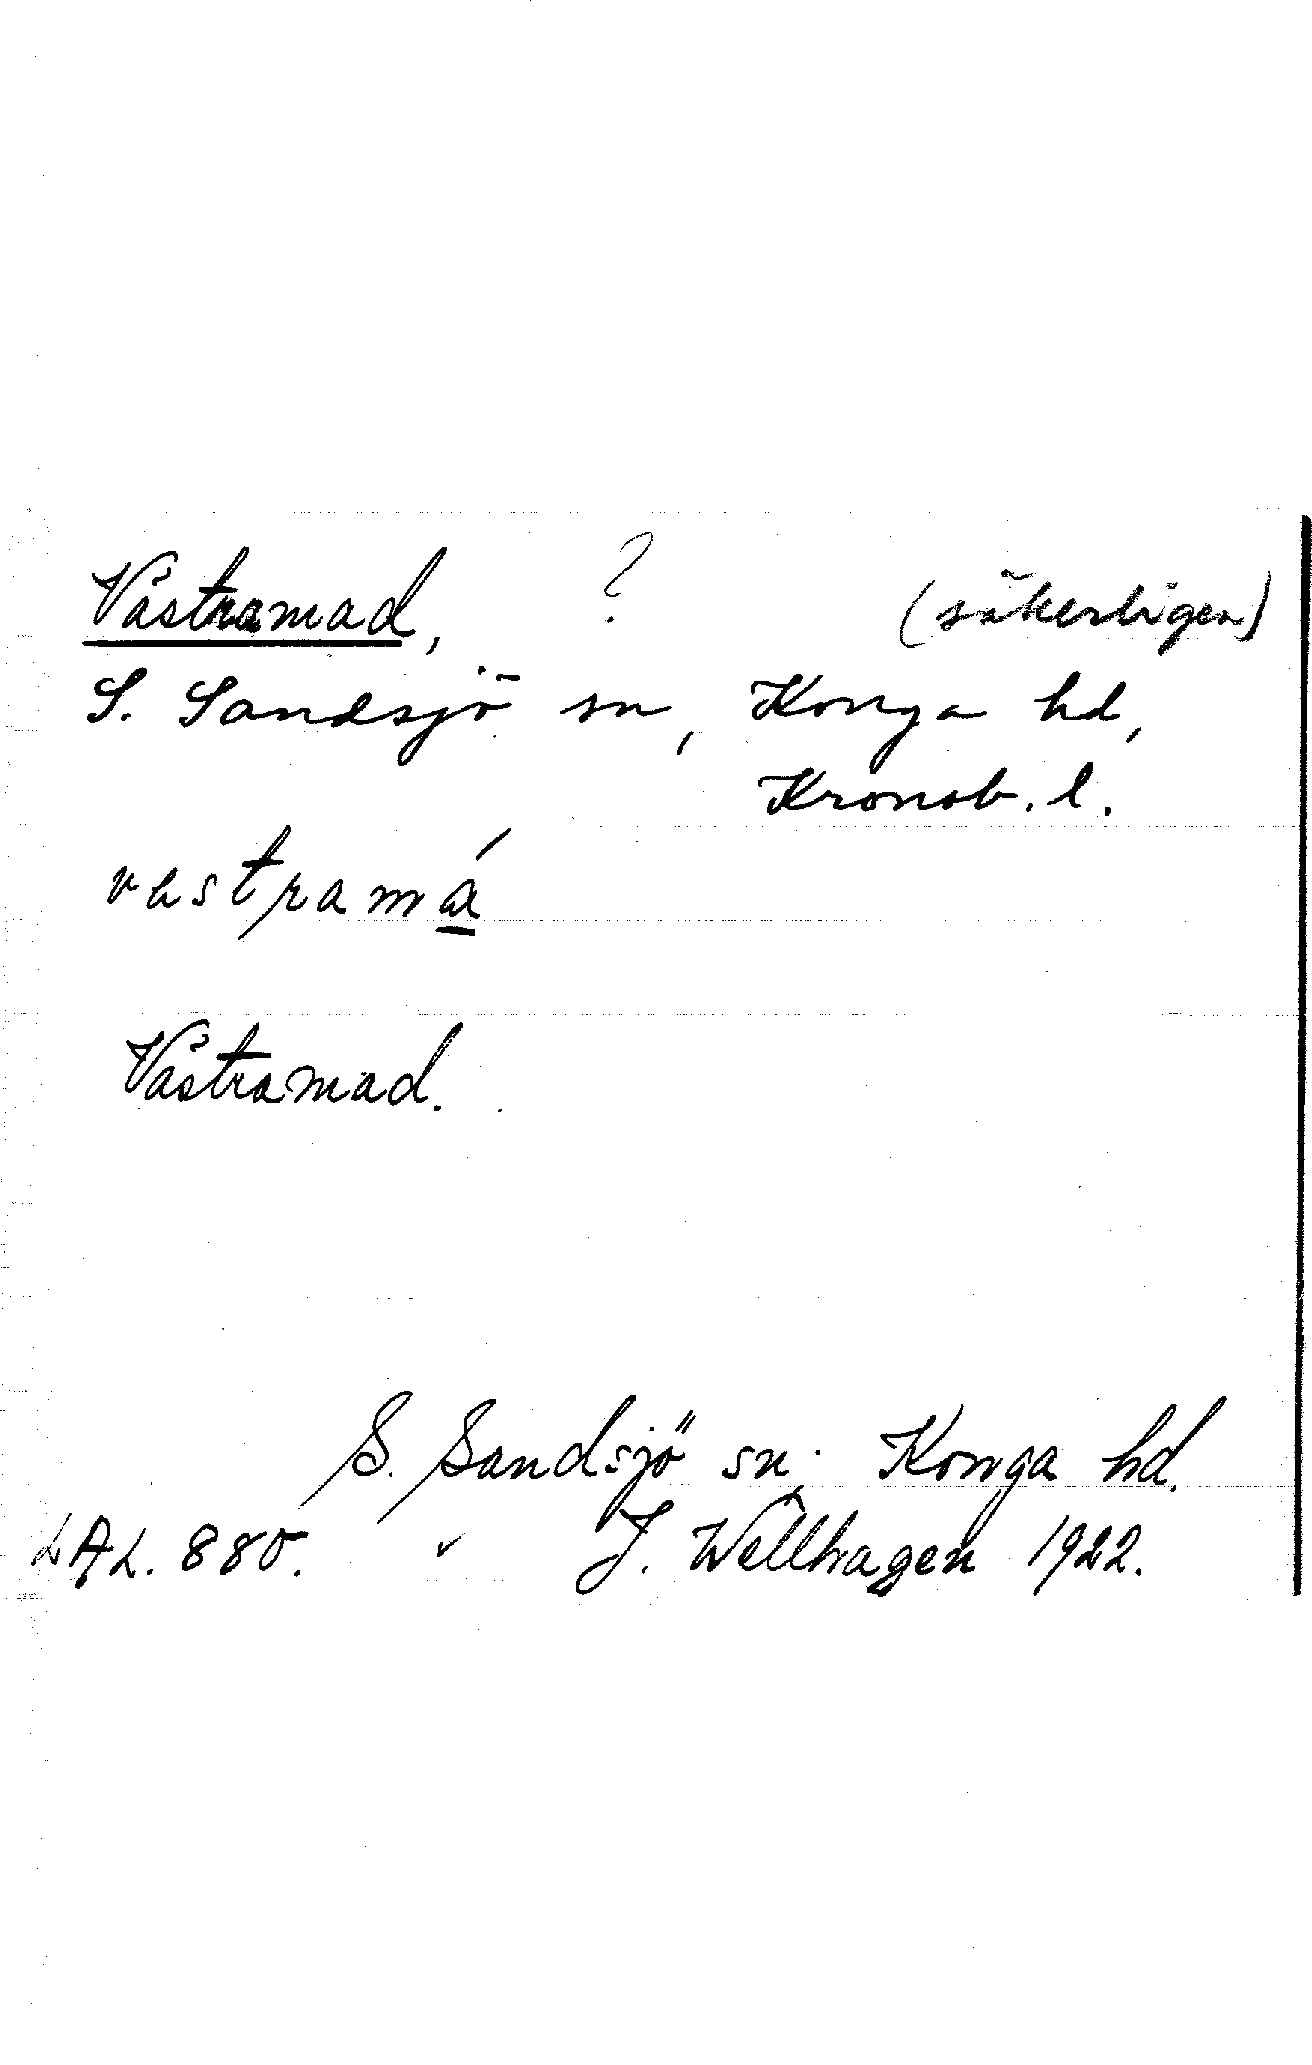 Västramad, ? (säkerligen)
S. Sandsjö sn, Konga hd,
Kronob. l.
västramá
Västramad.
S. Sandsjö sn. Konga hd.
LAL. 880. J. Wellhagen 1922.